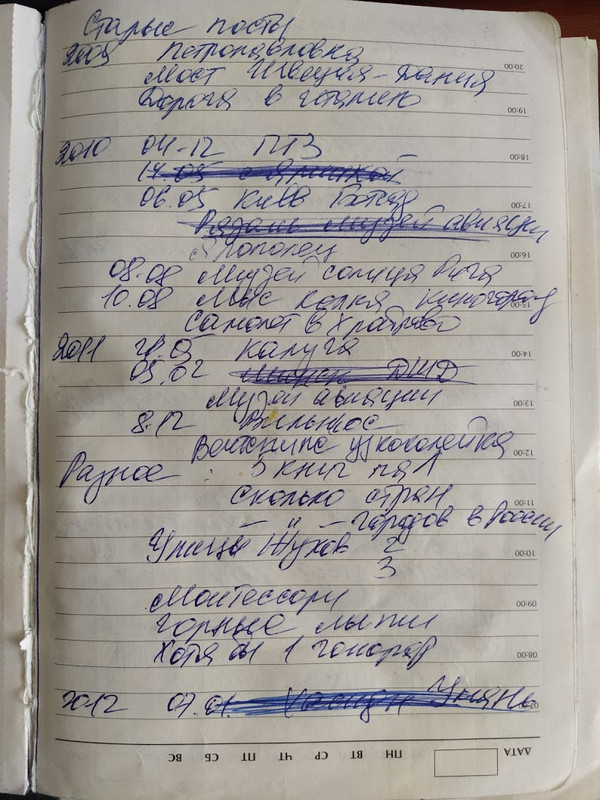 Старые посты
2009 Петропавловка
Мост Швеция-Дания
Дорога в
2010 04-12 ПТЗ
17.05
06.05 Киев
Рязань музей авиации
08.08 Музей солнца Рига
10.08 Мыс Колка киногород
Самолет в Храброво
2011 Калуга
05.02
Музей авиации
8.12 Вильнюс
узкоколейка
Разное : 3 книги на 1
Сколько стран
— " — городов в России
2
3
Монтессори
Горные лыжи
Хотя бы 1 гонорар
2012 07.01.
20:00
19:00
18:00
17:00
16:00
15:00
14:00
13:00
12:00
11:00
10:00
09:00
08:00
07:00
ДАТА ПН ВТ СР ЧТ ПТ СБ ВС